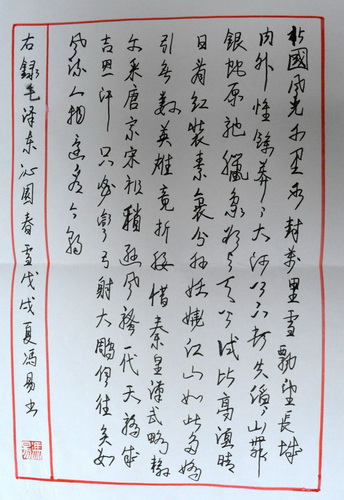 北國風光千里冰封萬里雪飄望長城
内外惟餘莽々大河上下頓失滔々山舞
銀蛇原馳臘象欲与天公試比高須晴
日看紅裝素裹分外妖嬈江山如此多嬌
引無數英雄竞折腰惜秦皇漢武略輸
文采唐宗宋祖稍遜風騷一代天驕成
吉思汗只識彎弓射大雕俱往矣数
風流人物還看今朝
右錄毛泽东沁園春雪戊戌夏馮易书